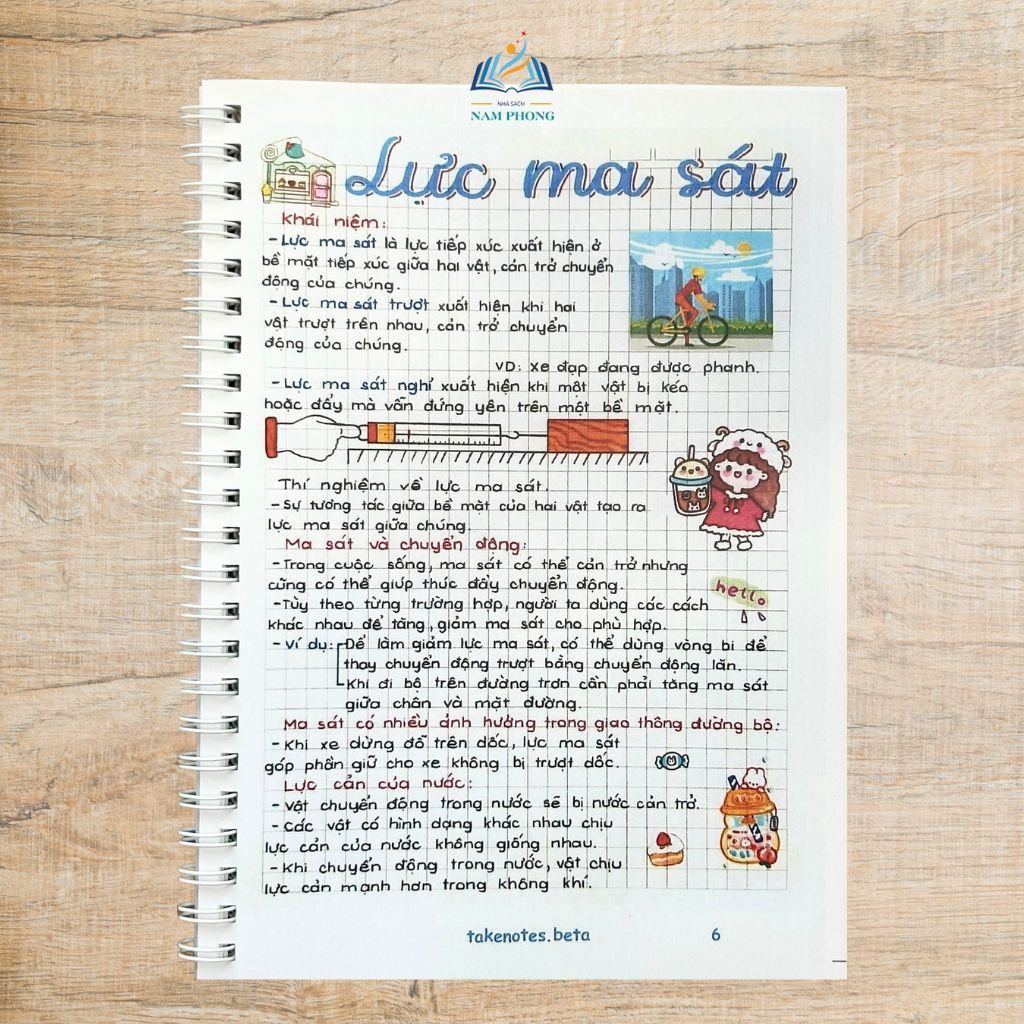 NHÀ SÁCH
NAM PHONG
Lực ma sát
Khái niệm:
- Lực ma sát là lực tiếp xúc xuất hiện ở
bề mặt tiếp xúc giữa hai vật, cản trở chuyển
động của chúng.
- Lực ma sát trượt xuất hiện khi hai
vật trượt trên nhau, cản trở chuyển
động của chúng.
VD: xe đạp đang được phanh.
- Lực ma sát nghỉ xuất hiện khi một vật bị kéo
hoặc đẩy mà vẫn đứng yên trên một bề mặt.
Thí nghiệm về lực ma sát.
- Sự tương tác giữa bề mặt của hai vật tạo ra
lực ma sát giữa chúng.
Ma sát và chuyển động:
- Trong cuộc sống, ma sát có thể cản trở nhưng
cũng có thể giúp thúc đẩy chuyển động.
hello
- Tùy theo từng trường hợp, người ta dùng các cách
khác nhau để tăng, giảm ma sát cho phù hợp.
- Ví dụ: Để làm giảm lực ma sát, có thể dùng vòng bi để
thay chuyển động trượt bằng chuyển động lăn.
Khi đi bộ trên đường trơn cần phải tăng ma sát
giữa chân và mặt đường.
Ma sát có nhiều ảnh hưởng trong giao thông đường bộ:
- Khi xe dừng đỗ trên dốc, lực ma sát
góp phần giữ cho xe không bị trượt dốc.
Lực cản của nước:
- Vật chuyển động trong nước sẽ bị nước cản trở.
- Các vật có hình dạng khác nhau chịu
lực cản của nước không giống nhau.
- Khi chuyển động trong nước, vật chịu
lực cản mạnh hơn trong không khí.
takenotes.beta 6